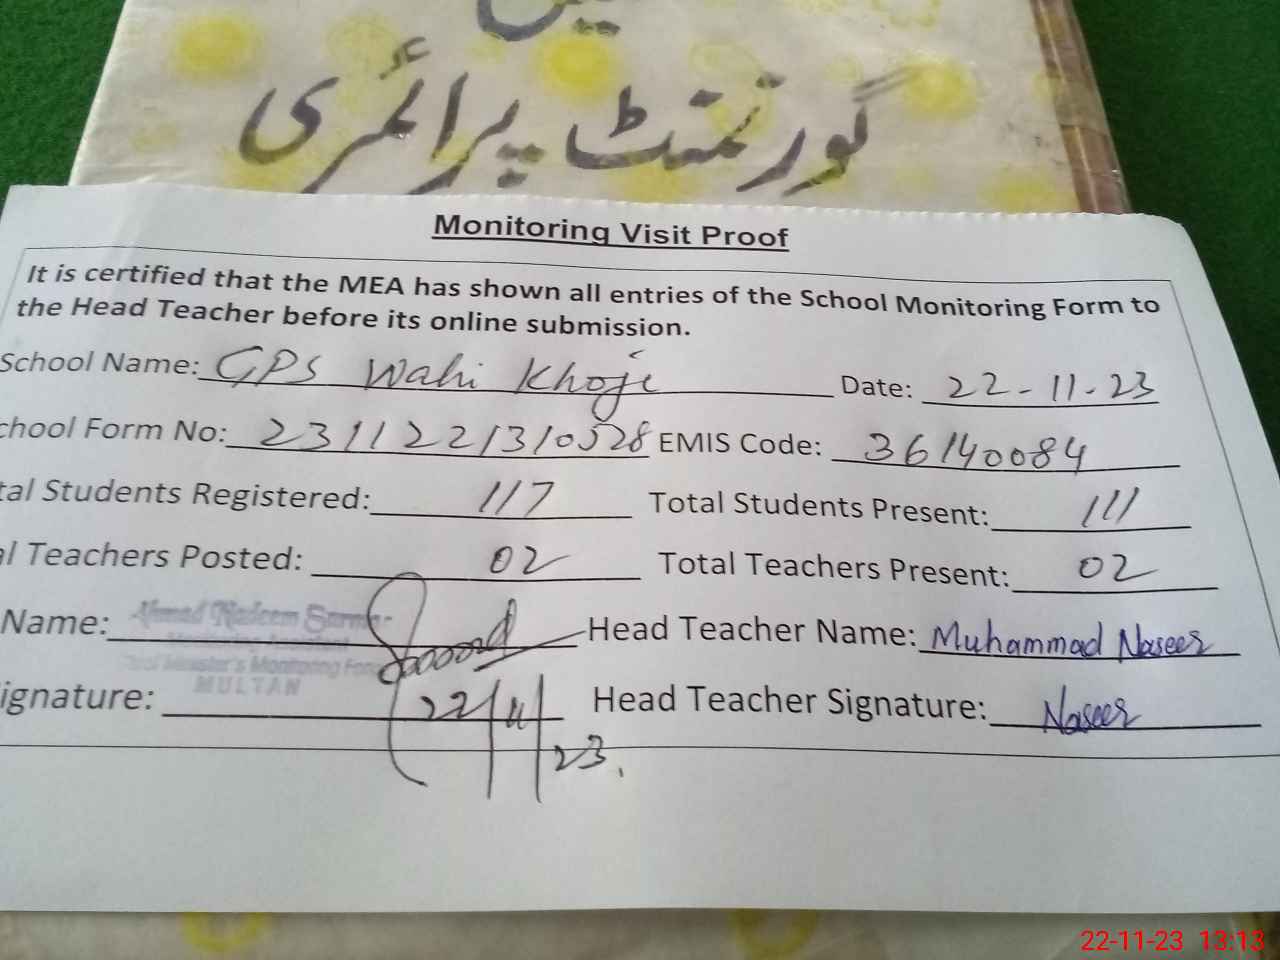 گورنمنٹ پرائمری
Monitoring Visit Proof
It is certified that the MEA has shown all entries of the School Monitoring Form to
the Head Teacher before its online submission.
School Name: GPS Wahi Khoje Date: 22-11-23
chool Form No: 2311221310528 EMIS Code: 36140084
tal Students Registered: 117 Total Students Present: 111
al Teachers Posted: 02 Total Teachers Present: 02
Name: Ahmad Nadeem Head Teacher Name: Muhammad Naseer
Monitoring Assistant
Chief Minister's Monitoring Force
MULTAN
ignature: 22/11/23. Head Teacher Signature: Naseer
22-11-23 13:13